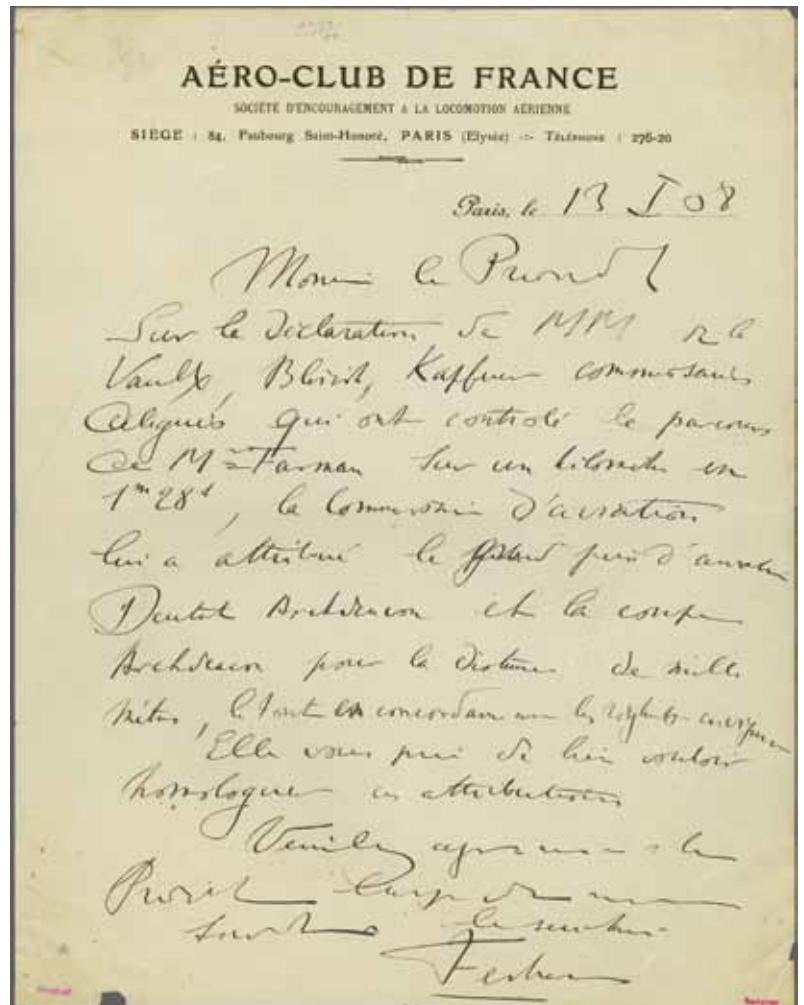 AÉRO-CLUB DE FRANCE
SOCIÉTÉ D'ENCOURAGEMENT A LA LOCOMOTION AÉRIENNE
SIÈGE : 84, Faubourg Saint-Honoré, PARIS (Elysée) -:- TÉLÉPHONE : 276-20
Paris, le 13 I 08
Monsieur le Président
Sur la Déclaration de MM de la
Vaulx, Blériot, Kapferer commissaires
délégués qui ont contrôlé le parcours
de Mr Farman sur un kilomètre en
1m 28s, la Commission d'aviation
lui a attribué le grand prix d'aviation
Deutsch Archdeacon et la coupe
Archdeacon pour la distance de mille
mètres, le tout en concordance avec les règlements en vigueur
Elle vous prie de bien vouloir
homologuer ces attributions
Veuillez agréer
Président
le secrétaire
Ferber